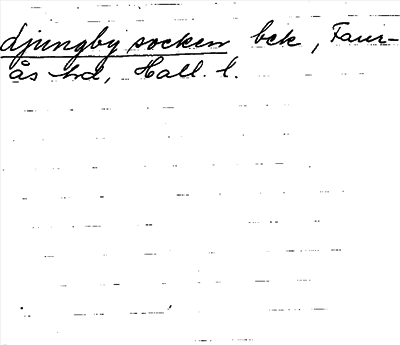 djungby socken bck, Faur-
ås hd, Hall. l.